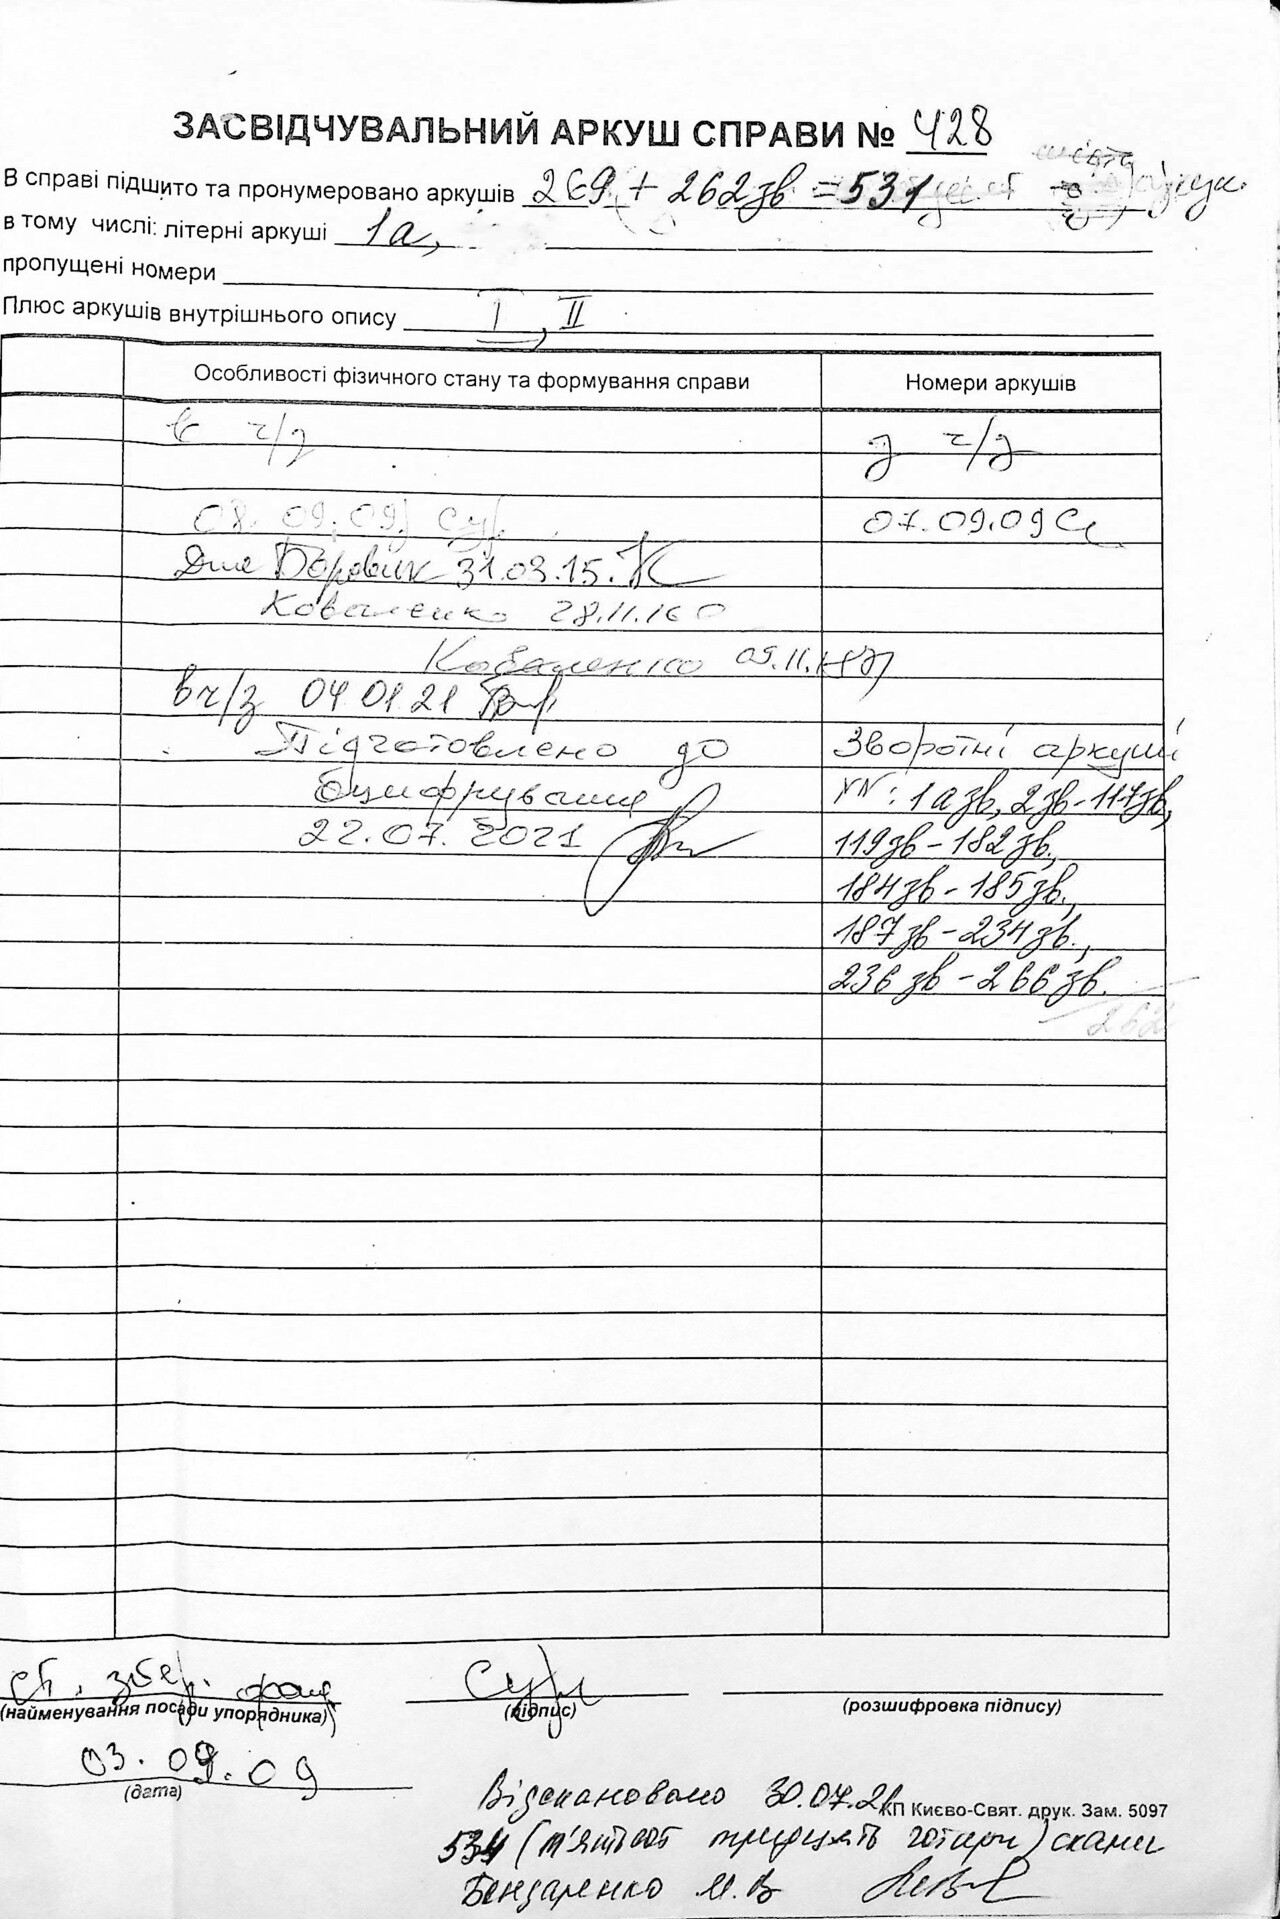 ЗАСВІДЧУВАЛЬНИЙ АРКУШ СПРАВИ № 428
В справі підшито та пронумеровано аркушів 269 + 262зв = 531
в тому числі: літерні аркуші 1а,
пропущені номери
Плюс аркушів внутрішнього опису I, II
Особливості фізичного стану та формування справи Номери аркушів
в ч/з з ч/з
08.09.09 07.09.09
Боровик 31.03.15.
Коваленко 28.11.16
Коваленко
в ч/з 04 01 21
Підготовлено до Зворотні аркуші
оцифрування NN: 1а зв, 2зв-117зв,
22.07.2021 119зв-182зв.,
184зв-185зв.,
187зв-234зв.,
236зв-266зв.
262
ст. збер. фонд
(найменування посади упорядника) (підпис) (розшифровка підпису)
03.09.09
(дата)
Відскановано 30.07.21 КП Києво-Свят. друк. Зам. 5097
534 (п'ятсот тридцять чотири) скани
Бондаренко М.В